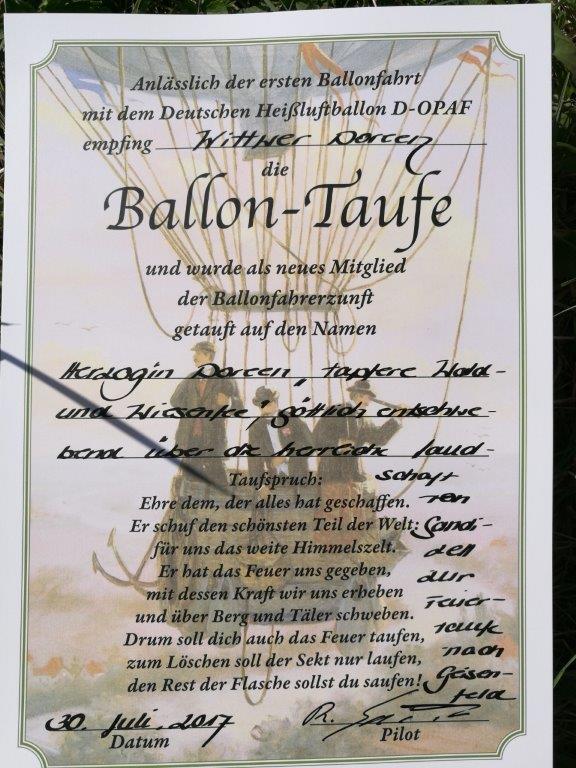 Anlässlich der ersten Ballonfahrt
mit dem Deutschen Heißluftballon D-OPAF
empfing Wittwer Doreen
die
Ballon-Taufe
und wurde als neues Mitglied
der Ballonfahrerzunft
getauft auf den Namen
Herzogin Doreen, tapfere Wald-
und Wiesenfee, göttlich entschwe-
bend über die herrliche Land-
schaft
Taufspruch:
Ehre dem, der alles hat geschaffen. von
Er schuf den schönsten Teil der Welt: Sandi-
für uns das weite Himmelszelt. zell
Er hat das Feuer uns gegeben, zur
mit dessen Kraft wir uns erheben Feier-
und über Berg und Täler schweben.
Drum soll dich auch das Feuer taufen,
zum Löschen soll der Sekt nur laufen, nach
den Rest der Flasche sollst du saufen! Geisen-
feld
30. Juli 2017 R.
Datum Pilot